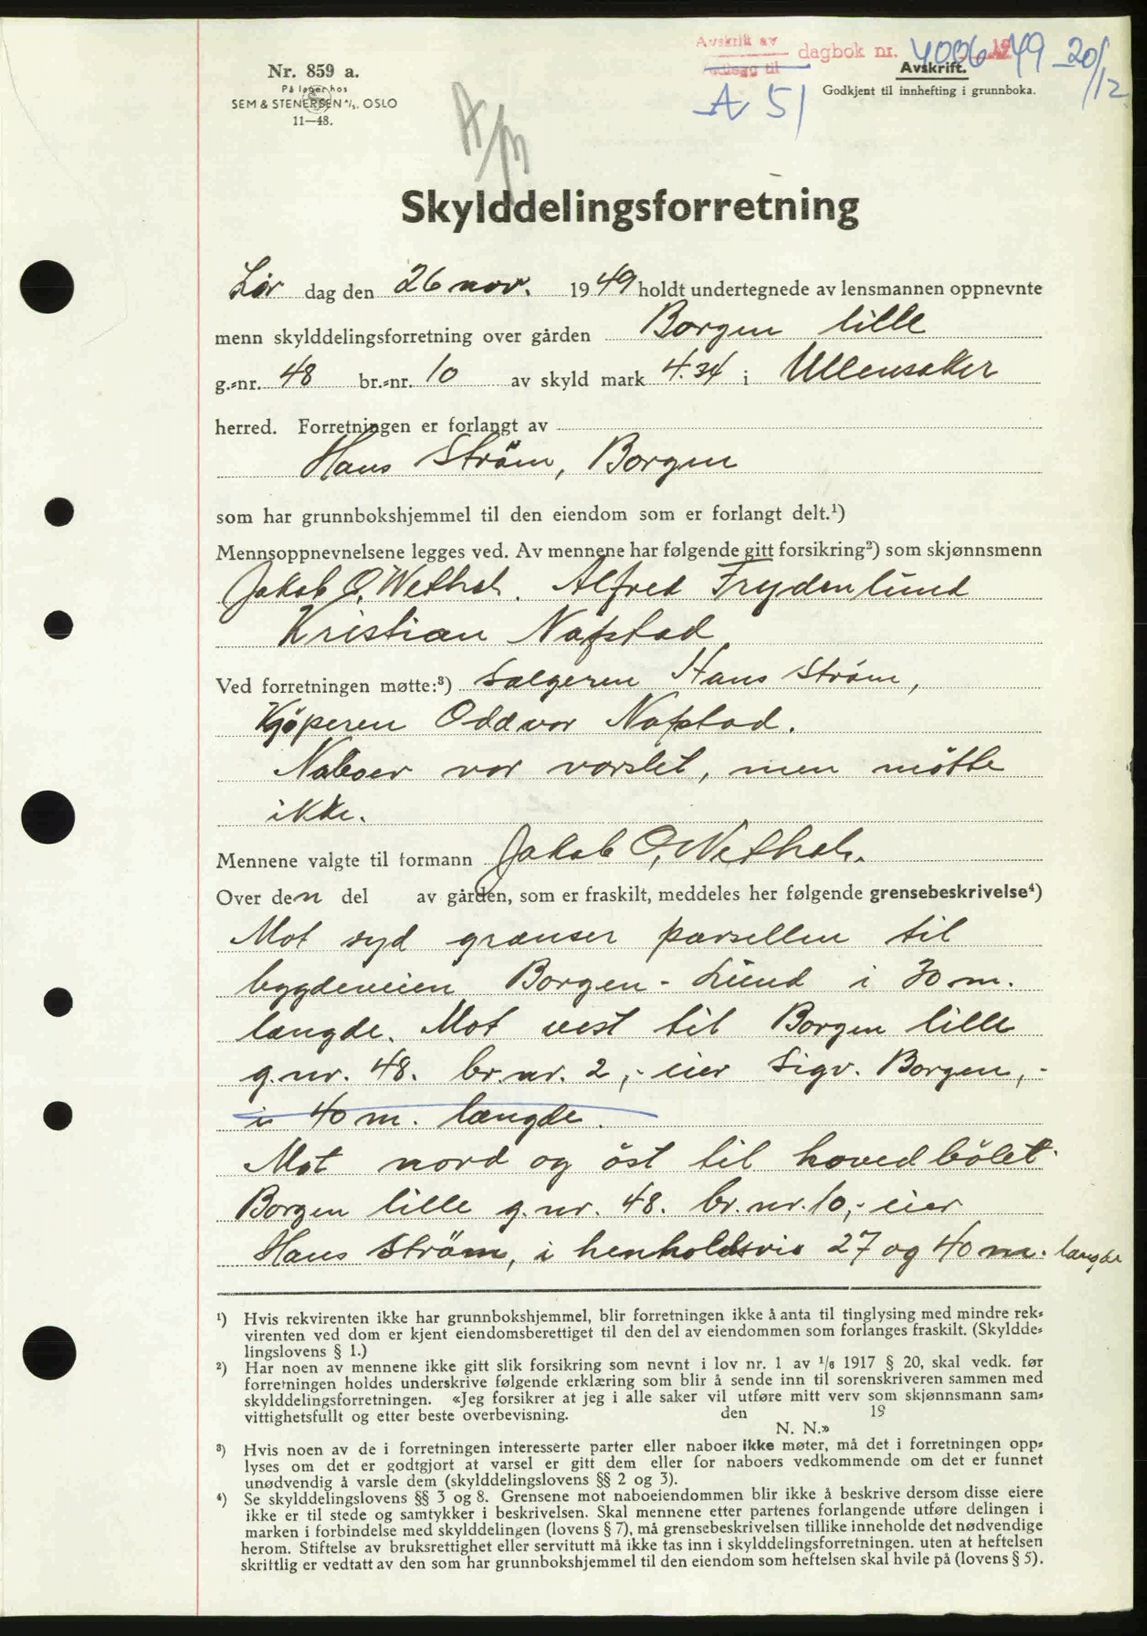 Avskrift av dagbok nr. 4006 1949 20/12
Vedlegg til
A 51
Avskrift.
Godkjent til innhefting i grunnboka.
Nr. 859 a.
På lager hos
SEM & STENERSEN A/S. OSLO
11—48.
Skylddelingsforretning
Lör dag den 26 nov. 1949 holdt undertegnede av lensmannen oppnevnte
menn skylddelingsforretning over gården Borgen lille
g.-nr. 48 br.-nr. 10 av skyld mark 4.34 i Ullensaker
herred. Forretningen er forlangt av
Hans Ström, Borgen
som har grunnbokshjemmel til den eiendom som er forlangt delt.¹)
Mennsoppnevnelsene legges ved. Av mennene har følgende gitt forsikring²) som skjønnsmenn
Jakob O. Wethal. Alfred Frydenlund
Kristian Nafstad
Ved forretningen møtte:³) Selgeren Hans Ström,
Kjöperen Oddvar Nafstad.
Naboer var varslet, men mötte
ikke.
Mennene valgte til formann Jakob O. Wethal.
Over den del av gården, som er fraskilt, meddeles her følgende grensebeskrivelse⁴)
Mot syd grenser parsellen til
bygdeveien Borgen - Lund i 30 m.
længde. Mot vest til Borgen lille
g.nr. 48. br.nr. 2, - eier Sigv. Borgen, -
i 40 m. længde.
Mot nord og öst til hovedbölet
Borgen lille g.nr. 48. br.nr. 10, - eier
Hans Ström, i henholdsvis 27 og 40 m. længde
¹) Hvis rekvirenten ikke har grunnbokshjemmel, blir forretningen ikke å anta til tinglysing med mindre rek-
virenten ved dom er kjent eiendomsberettiget til den del av eiendommen som forlanges fraskilt. (Skyldde-
lingslovens § 1.)
²) Har noen av mennene ikke gitt slik forsikring som nevnt i lov nr. 1 av 1/6 1917 § 20, skal vedk. før
forretningen holdes underskrive følgende erklæring som blir å sende inn til sorenskriveren sammen med
skylddelingsforretningen. «Jeg forsikrer at jeg i alle saker vil utføre mitt verv som skjønnsmann sam-
vittighetsfullt og etter beste overbevisning. den 19
N. N.»
³) Hvis noen av de i forretningen interesserte parter eller naboer ikke møter, må det i forretningen opp-
lyses om det er godtgjort at varsel er gitt dem eller for naboers vedkommende om det er funnet
unødvendig å varsle dem (skylddelingslovens §§ 2 og 3).
⁴) Se skylddelingslovens §§ 3 og 8. Grensene mot naboeiendommen blir ikke å beskrive dersom disse eiere
ikke er til stede og samtykker i beskrivelsen. Skal mennene etter partenes forlangende utføre delingen i
marken i forbindelse med skylddelingen (lovens § 7), må grensebeskrivelsen tillike inneholde det nødvendige
herom. Stiftelse av bruksrettighet eller servitutt må ikke tas inn i skylddelingsforretningen. uten at heftelsen
skriftlig er vedtatt av den som har grunnbokshjemmel til den eiendom som heftelsen skal hvile på (lovens § 5).